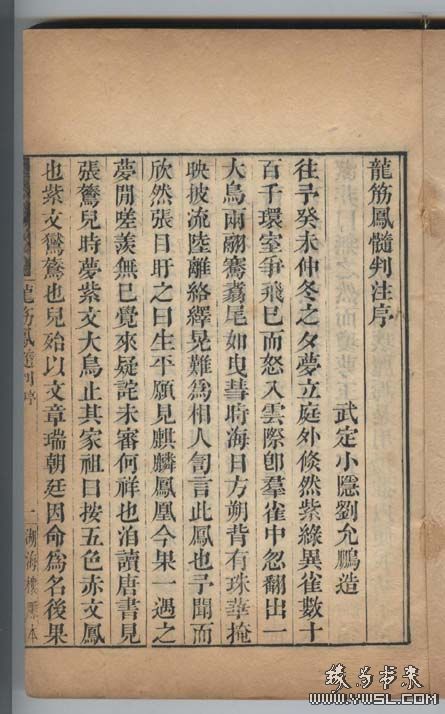 龍筋鳳髓判注序
武定小隱劉允鵬造
往予癸未仲冬之夕夢立庭外倏然紫綠異雀數十
百千環室爭飛已而怒入雲際卽羣雀中忽翻出一
大鳥兩翮騫翥尾如曳彗時海日方朔背有珠華掩
映披流陸離絡繹晃難為相人訇言此鳳也予聞而
欣然張目盱之曰生平願見麒麟鳳凰今果一遇之
夢閒嗟羨無已覺來疑詫未審何祥也洎讀唐書見
張鷟兒時夢紫文大鳥止其家祖曰按五色赤文鳳
也紫文鸑鷟也兒殆以文章瑞朝廷因命為名後果
龍筋鳳髓判序
一
湖海樓原本
WWW.YWSL.COM